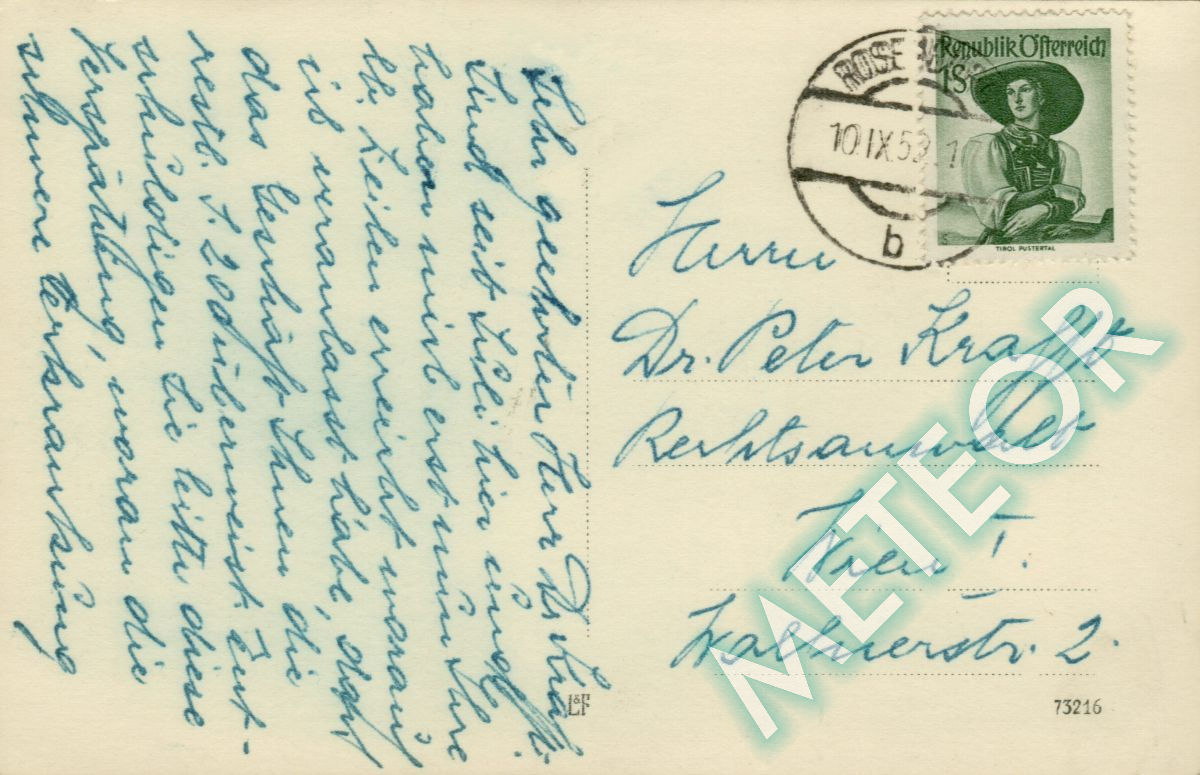 Sehr geehrter Herr Dr. Kra-
Sind seit Juli hier und
haben mich erst nun Ihre
lb. Zeilen erreicht worauf
ich veranlasst habe, dass
das Geschäft Ihnen die
restl. S. 200 überweist. Ent-
schuldigen Sie bitte diese
Verspätung, woran die
schwere Erkrankung
Republik Österreich
1S
TIROL PUSTERTAL
ROSE
10.IX.53
b
Herrn
Dr. Peter Krafft
Rechtsanwalt
Wien I.
Wallnerstr. 2.
L&P
73216
METEOR